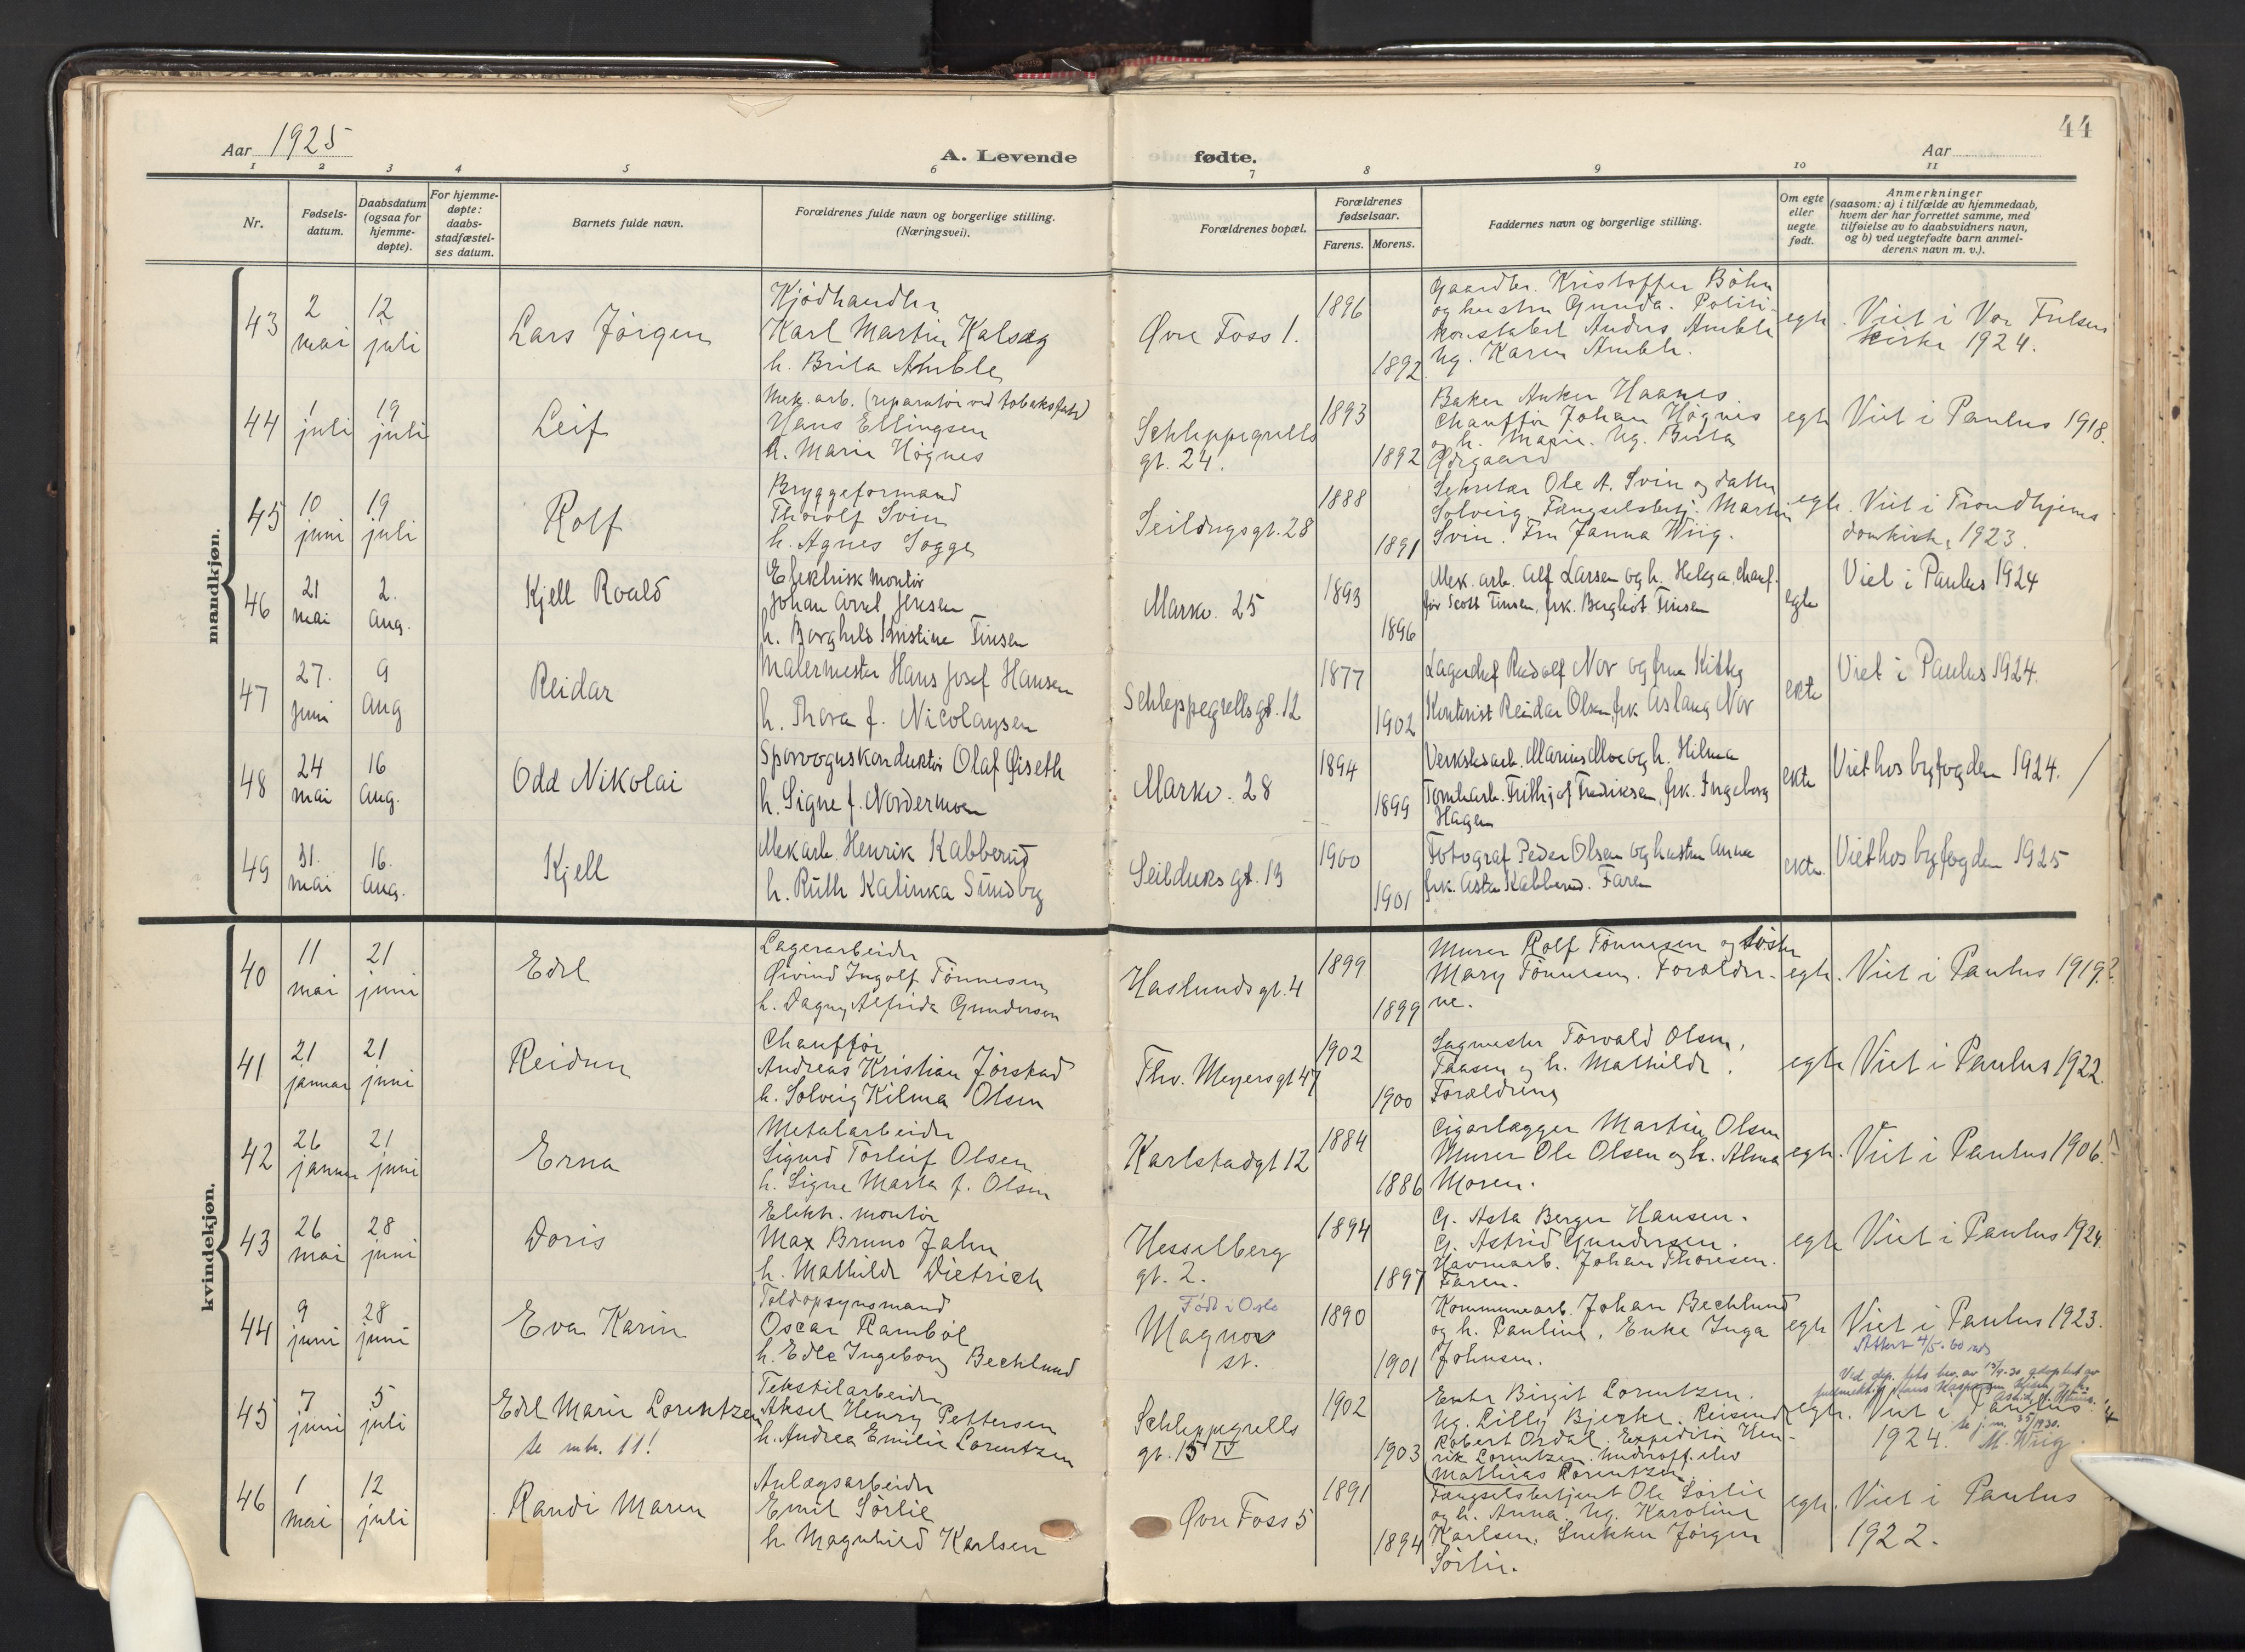 44
Aar 1925
A. Levende
fødte.
Aar
1 2 3 4 5 6 7 8 9 10 11
Nr.
Fødsels-
datum.
Daabsdatum
(ogsaa for
hjemme-
døpte).
For hjemme-
døpte:
daabs-
stadfæstel-
ses datum.
Barnets fulde navn.
Forældrenes fulde navn og borgerlige stilling.
(Næringsvei).
Forældrenes bopæl.
Forældrenes
fødselsaar.
Farens. Morens.
Faddernes navn og borgerlige stilling.
Om egte
eller
uegte
født.
Anmerkninger
(saasom: a) i tilfælde av hjemmedaab,
hvem der har forrettet samme, med
tilføielse av to daabsvidners navn,
og b) ved uegtefødte barn anmel-
derens navn m. v.).
mandkjøn.
43
2
mai
12
juli
Lars Jörgen
Kjödhandler
Karl Martin Kalsæg
h. Brita Amble
Øvre Foss 1.
1896
1892
Gaardbr. Kristoffer Böhn
og hustru Gunda. Politi-
konstabel Anders Amble
Ug. Karen Amble.
egte
Viet i Vor Frelsers
kirke 1924.
44
1
juli
19
juli
Leif
Mek. arb. (reparatör ved tobaksfabr)
Hans Ellingsen
h. Marie Högnes
Schleppegrells
gt. 24.
1893
1892
Baker Anker Haanes.
Chaufför Johan Högnes
og h. Marie. Ug. Berta
Ødegaard
egte
Viet i Paulus 1918.
45
10
juni
19
juli
Rolf
Bryggeformand
Thorolf Svin
h. Agnes Sogge
Seildugsgt. 28
1888
1891
Sekretær Ole A. Svin og datter
Solveig. Fængselsbetj. Martin
Svin. Fru Janna Wiig.
egte.
Viet i Trondhjems
domkirke 1923.
46
21
mai
2.
aug.
Kjell Roald
Elektrisk montör
Johan Arvel Jensen
h. Borghild Kristine Finsen
Markv. 25
1893
1896
Mek. arb. Alf Larsen og h. Helga, chauf-
för Scott Finsen, frk. Bergliot Finsen
egte
Viet i Paulus 1924
47
27.
juni
9
aug
Reidar
Malermester Hans Josef Hansen
h. Thora f. Nicolaysen
Schleppegrellsgt. 12
1877
1902
Lagerchef Rudolf Nor og frue Kitty
Kontorist Reidar Olsen, frk Aslaug Nor
ekte
Viet i Paulus 1924.
48
24
mai
16
aug.
Odd Nikolai
Sporvognskonduktör Olaf Øiseth
h. Signe f. Nordermoen
Markv. 28
1894
1899
Verkstedarb. Marius Moe og h. Hilma
Tomtearb. Frithjof Fredriksen, frk. Ingeborg
Hagen
ekte
Viet hos byfogden 1924.
49
31.
mai
16.
aug.
Kjell
Mek arb. Henrik Kabberud
h. Ruth Katinka Sundby
Seilduksgt. 13
1900
1901
Fotograf Peder Olsen og hustru Anna
frk. Asta Kabberud. Faren
ekte.
Viet hos byfogden 1925
kvindekjøn.
40
11
mai
21
juni
Edel
Lagerarbeider
Øivind Ingolf Tönnesen
h. Dagny Alfrida Gundersen
Haslundsgt. 4
1899
1899
Murer Rolf Tönnesen og söster
Mary Tönnesen. Foreldre-
ne.
egte.
Viet i Paulus 1919?
41
21
januar
21
juni
Reidun
Chaufför
Andreas Kristian Jörstad
h. Solveig Kilma Olsen
Thv. Meyersgt 47
1902
1900
Sagmester Torvald Olsen,
Faasen og h. Mathilde.
Forældrene
egte
Viet i Paulus 1922.
42
26
januar
21
juni
Erna
Metalarbeider
Sigurd Torleif Olsen
h. Signe Marta f. Olsen
Karlstadgt 12
1884
1886
Cigarlægger Martin Olsen
Murer Ole Olsen og h. Alma
Moren.
egte.
Viet i Paulus 1906.?
43
26
mai
28
juni
Doris
Elektr. montör
Max Bruno Jahn
h. Mathilde Dietrich
Hesselberg
gt. 2.
1894
1897
G. Asta Berger Hansen.
G. Astrid Gundersen.
Havnearb. Johan Thoresen.
Faren.
egte
Viet i Paulus 1924.
44
9
juni
28
juni
Eva Karin
Toldopsynsmand
Oscar Ramböl
h. Edle Ingeborg Bechlund
Født i Oslo
Magnor
st.
1890
1901
Kommunearb. Johan Bechlund
og h. Pauline. Enke Inga
Johnsen.
egte
Viet i Paulus 1923.
Attest 4/5-60
45
7
juni
5
juli
Edel Marie Lorentzen
se nr. 11!
Tekstilarbeider
Aksel Henry Pettersen
h. Andrea Emilie Lorentzen
Schleppegrells
gt. 15 IV
1902
1903
Enke Birgit Lorentzen.
Ug. Lilly Bjerke. Reisende
Robert Ordal. Expeditör Hen-
rik Lorentzen. Underoff. elev
Mathias Lorentzen
egte.
Ved dep. bev. av 13/9-30 adoptert av
Viet i Paulus
1924.
se j.nr. 35/1930.
M. Wiig
46
1
mai
12
juli
Randi Maren
Anlægsarbeider
Emil Sörlie
h. Magnhild Karlsen
Øvre Foss 5
1891
1894
Fængselsbetjent Ole Sörlie
og h. Anna. Ug. Karoline
Karlsen, Snekker Jörgen
Sörlie.
egte.
Viet i Paulus
1922.